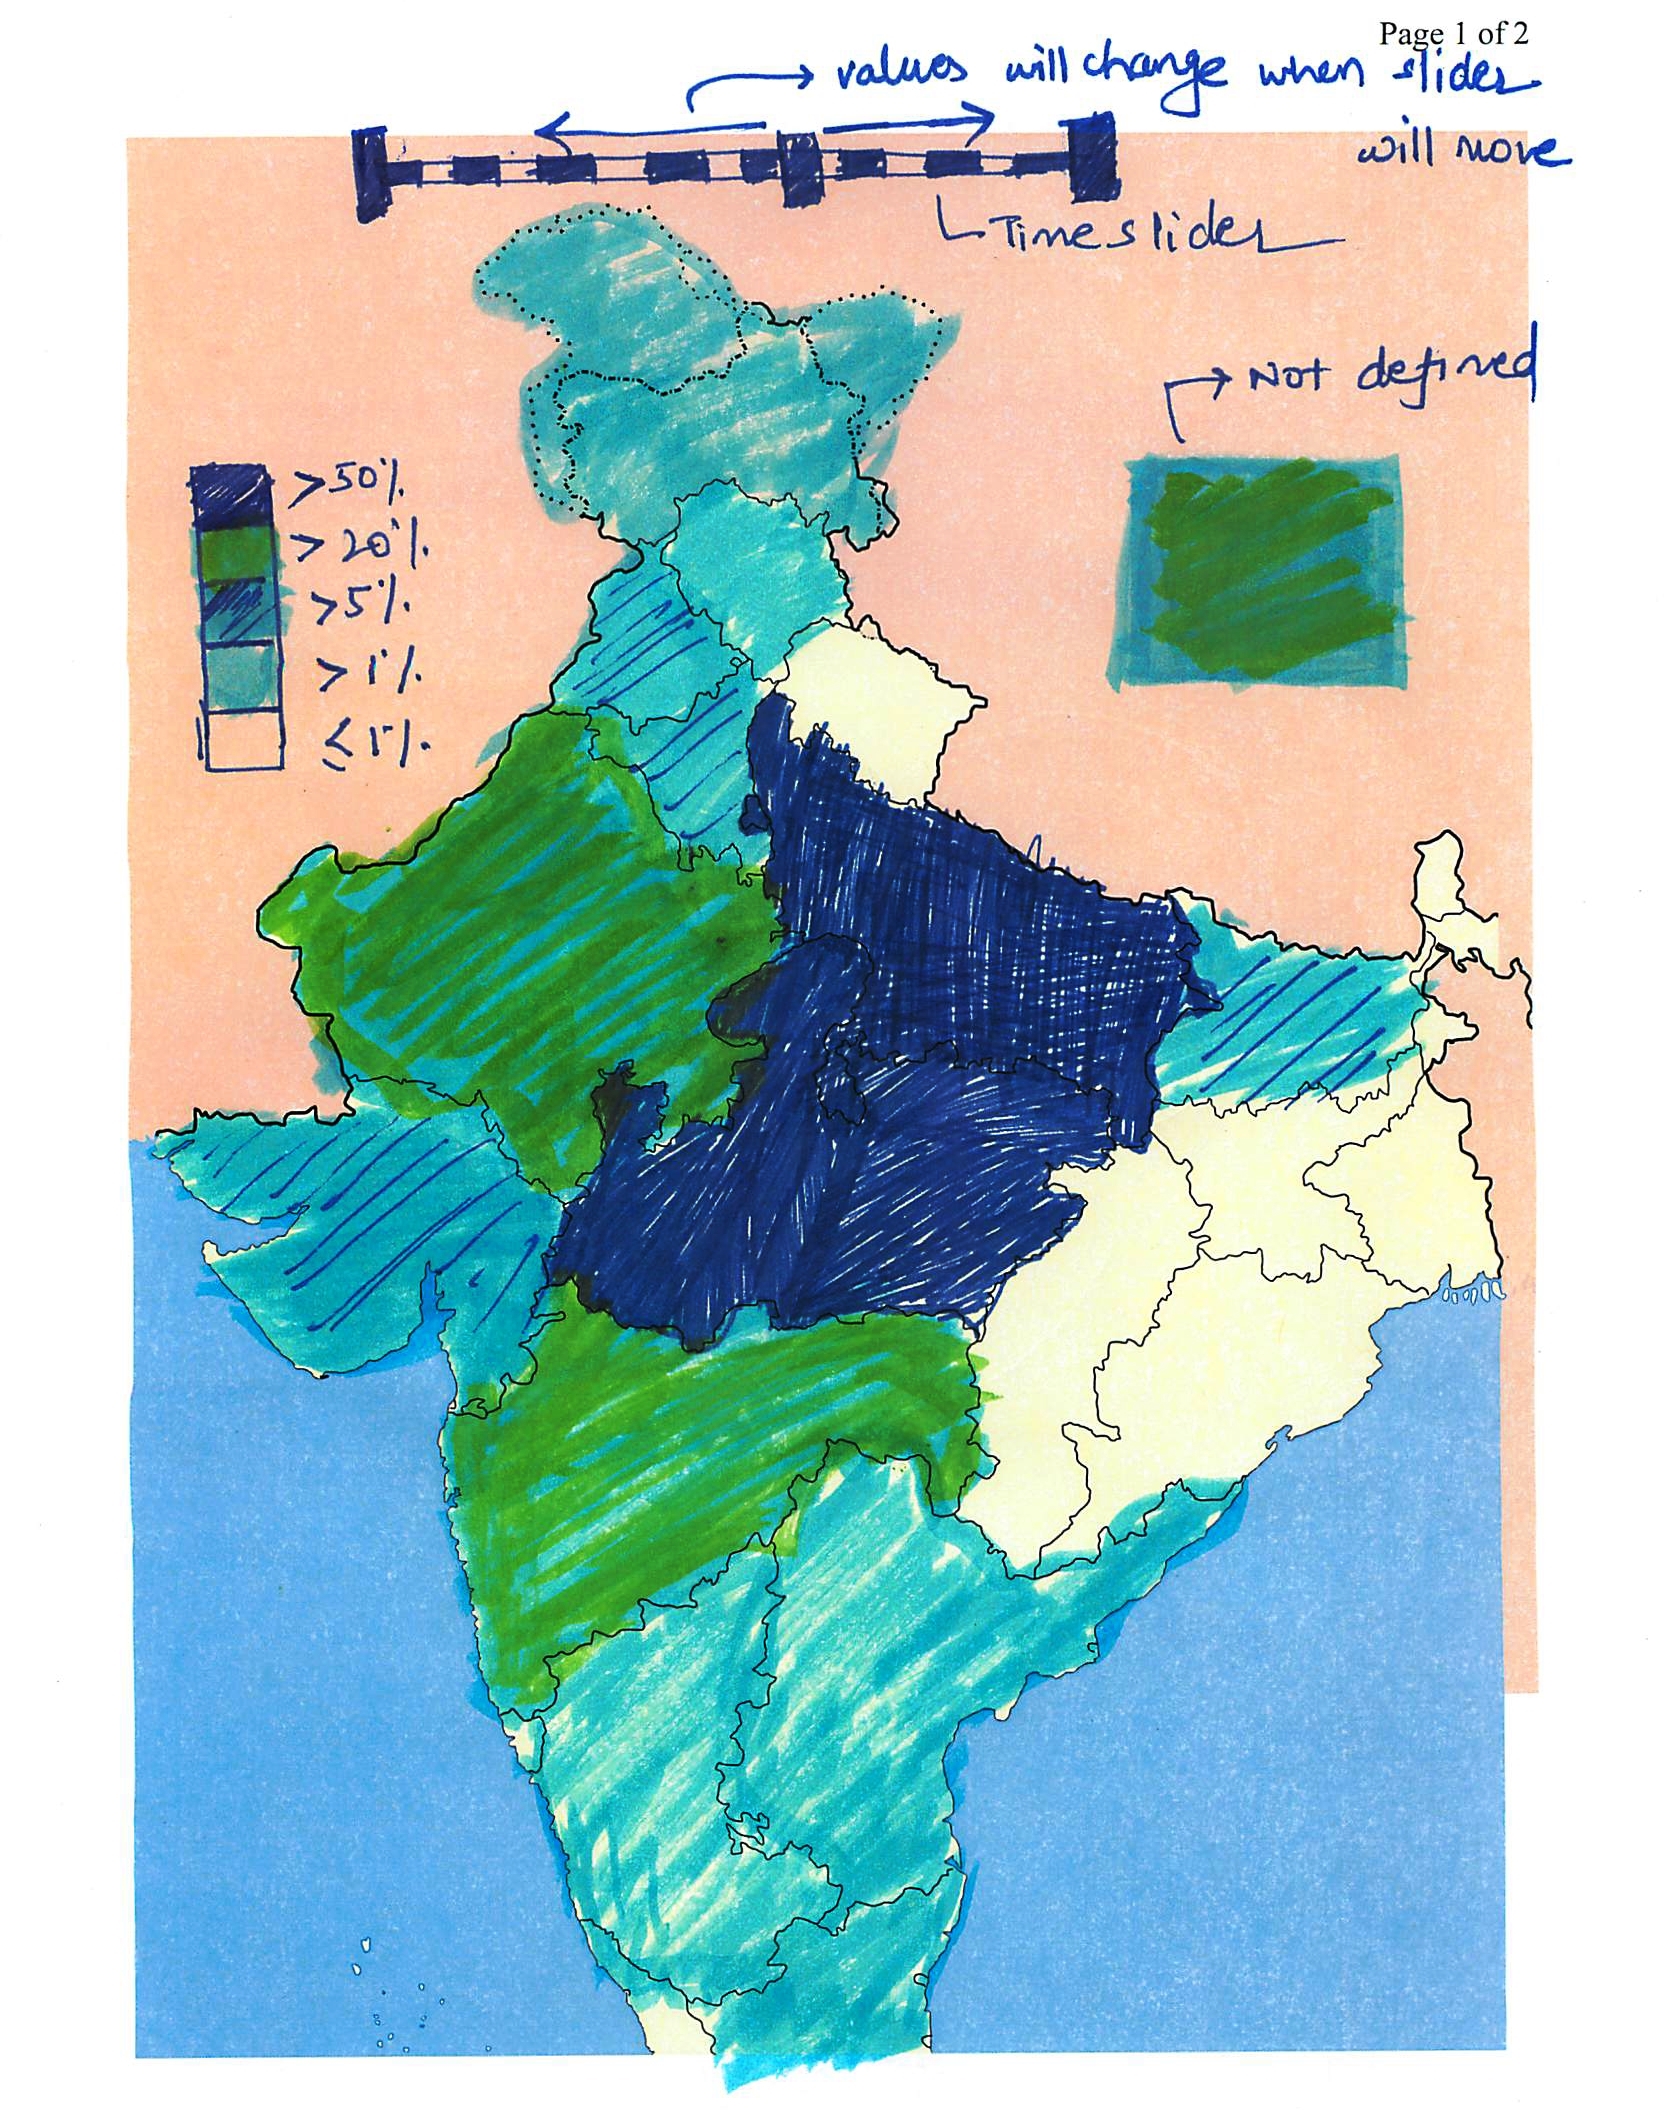 Page 1 of 2
values will change when slider
will move
Time slider
Not defined
>50%
>20%
>5%
>1%
≤1%